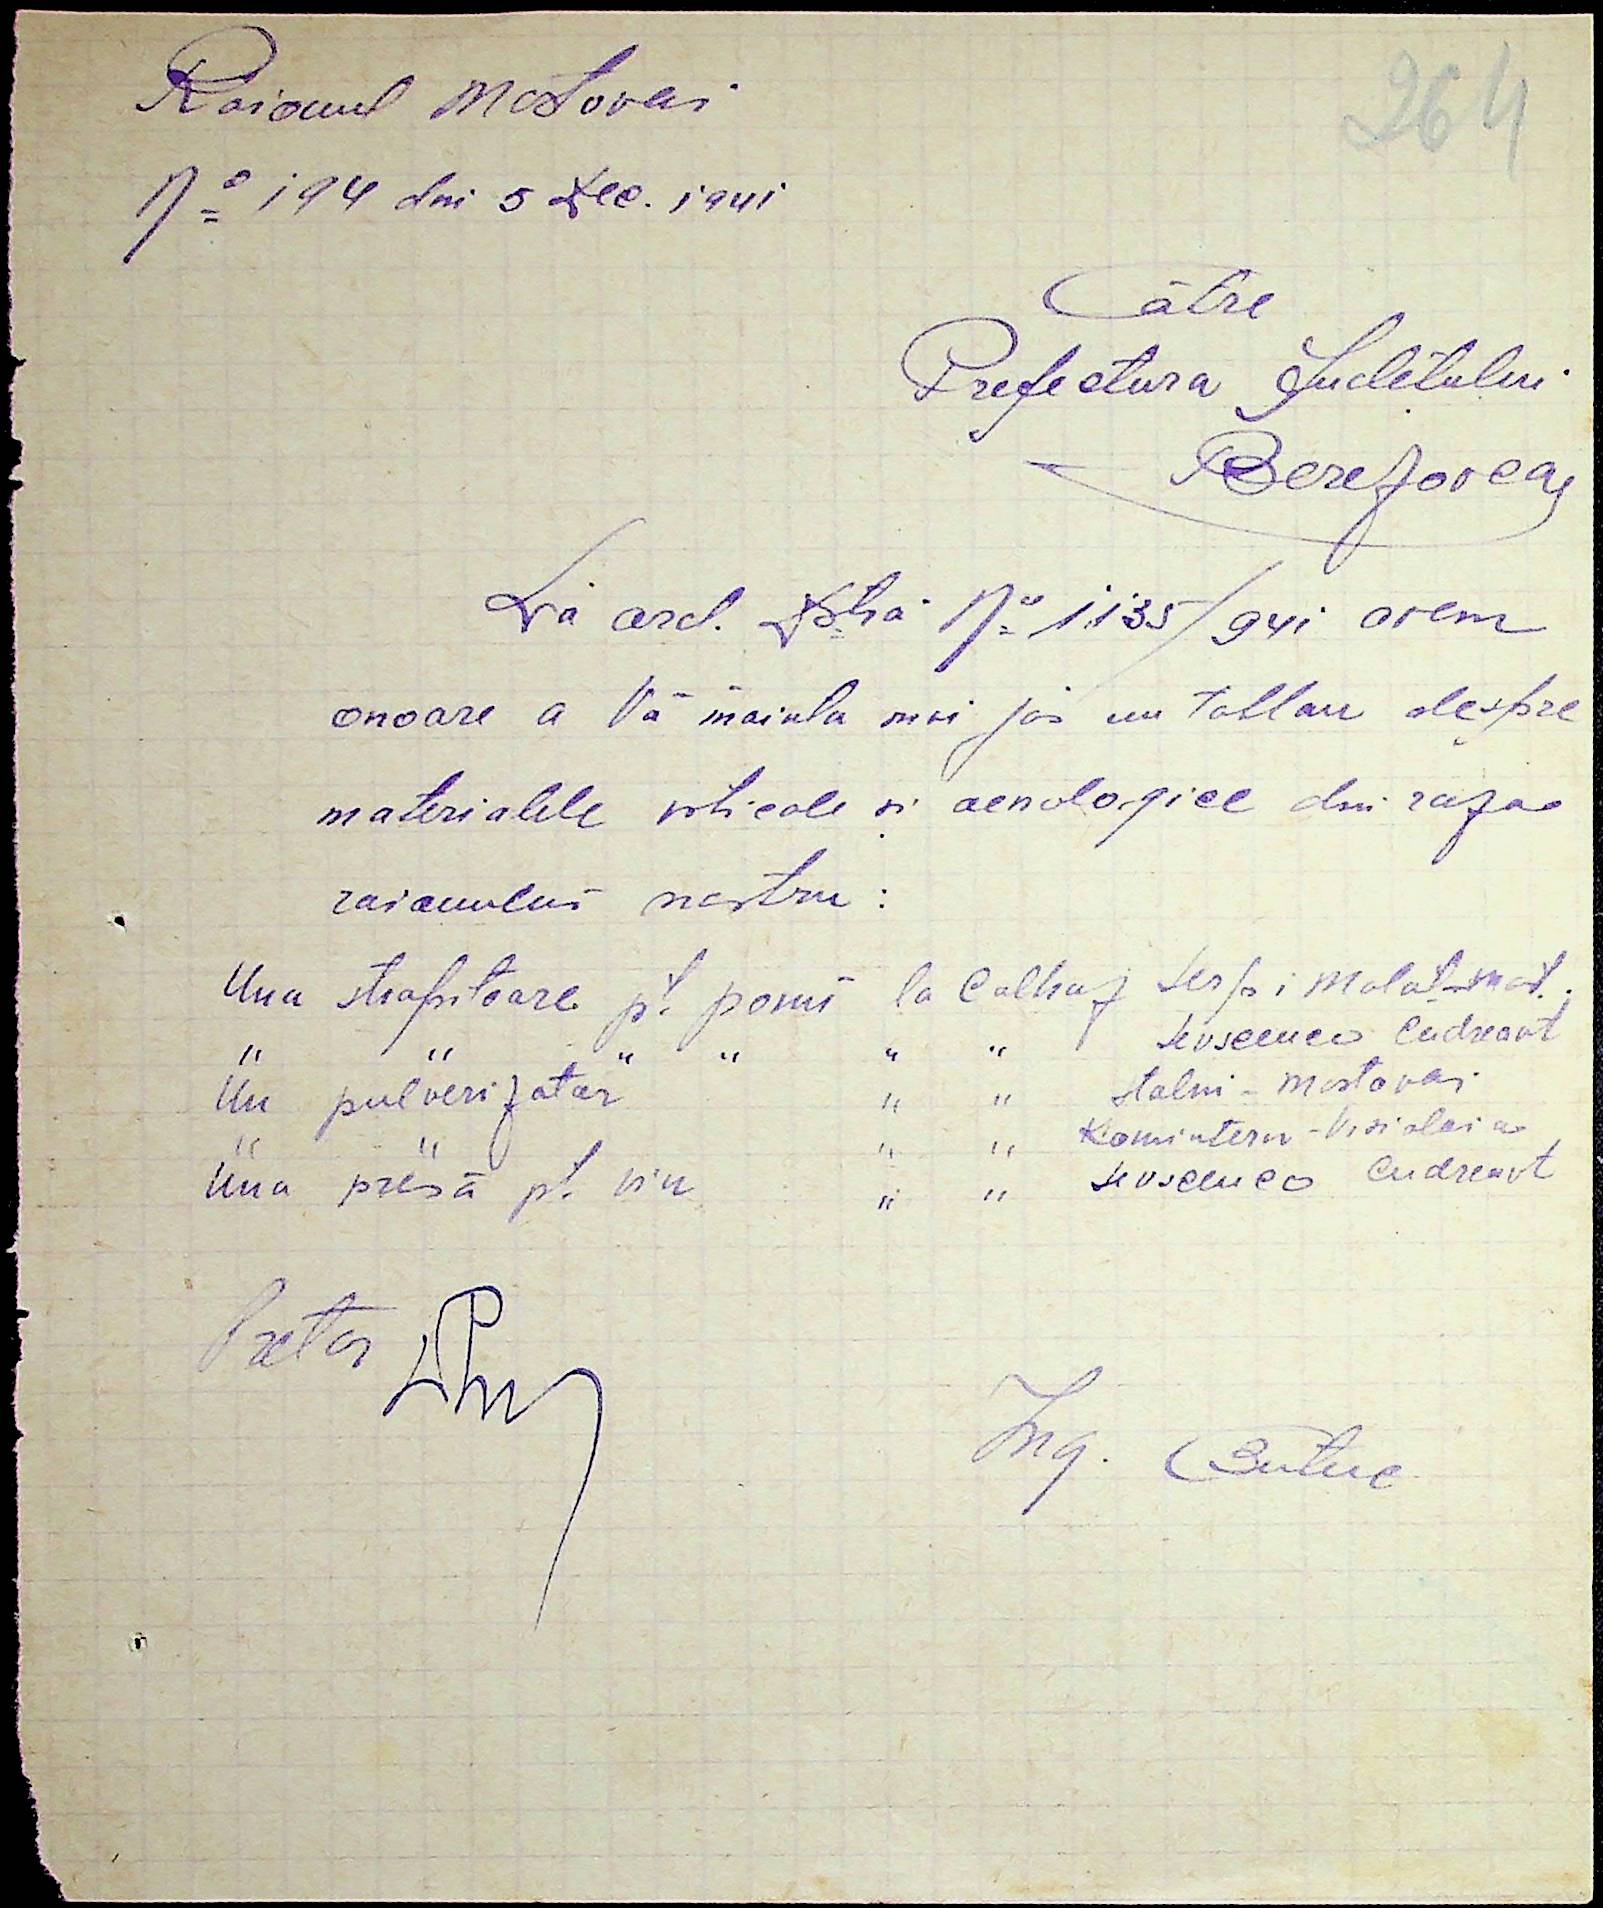 264
Raionul Mostovoi
No 194 din 5 Dec. 1941
Către
Prefectura Județului
Berezovca
La ord. Dstră No 1135/941 avem
onoare a Vă înainta mai jos un tablou despre
materialele viticole și oenologice din raza
raionului nostru:
Una stropitoare pt. pomi la Colhoz Serp i Molot-Most.
" " " " " " Andreavt
Un pulverizator " " Stalin - Mostovoi
" " " " Komintern -
Una presă pt. vin " " Andreavt
Pretor
Ing. Butuc